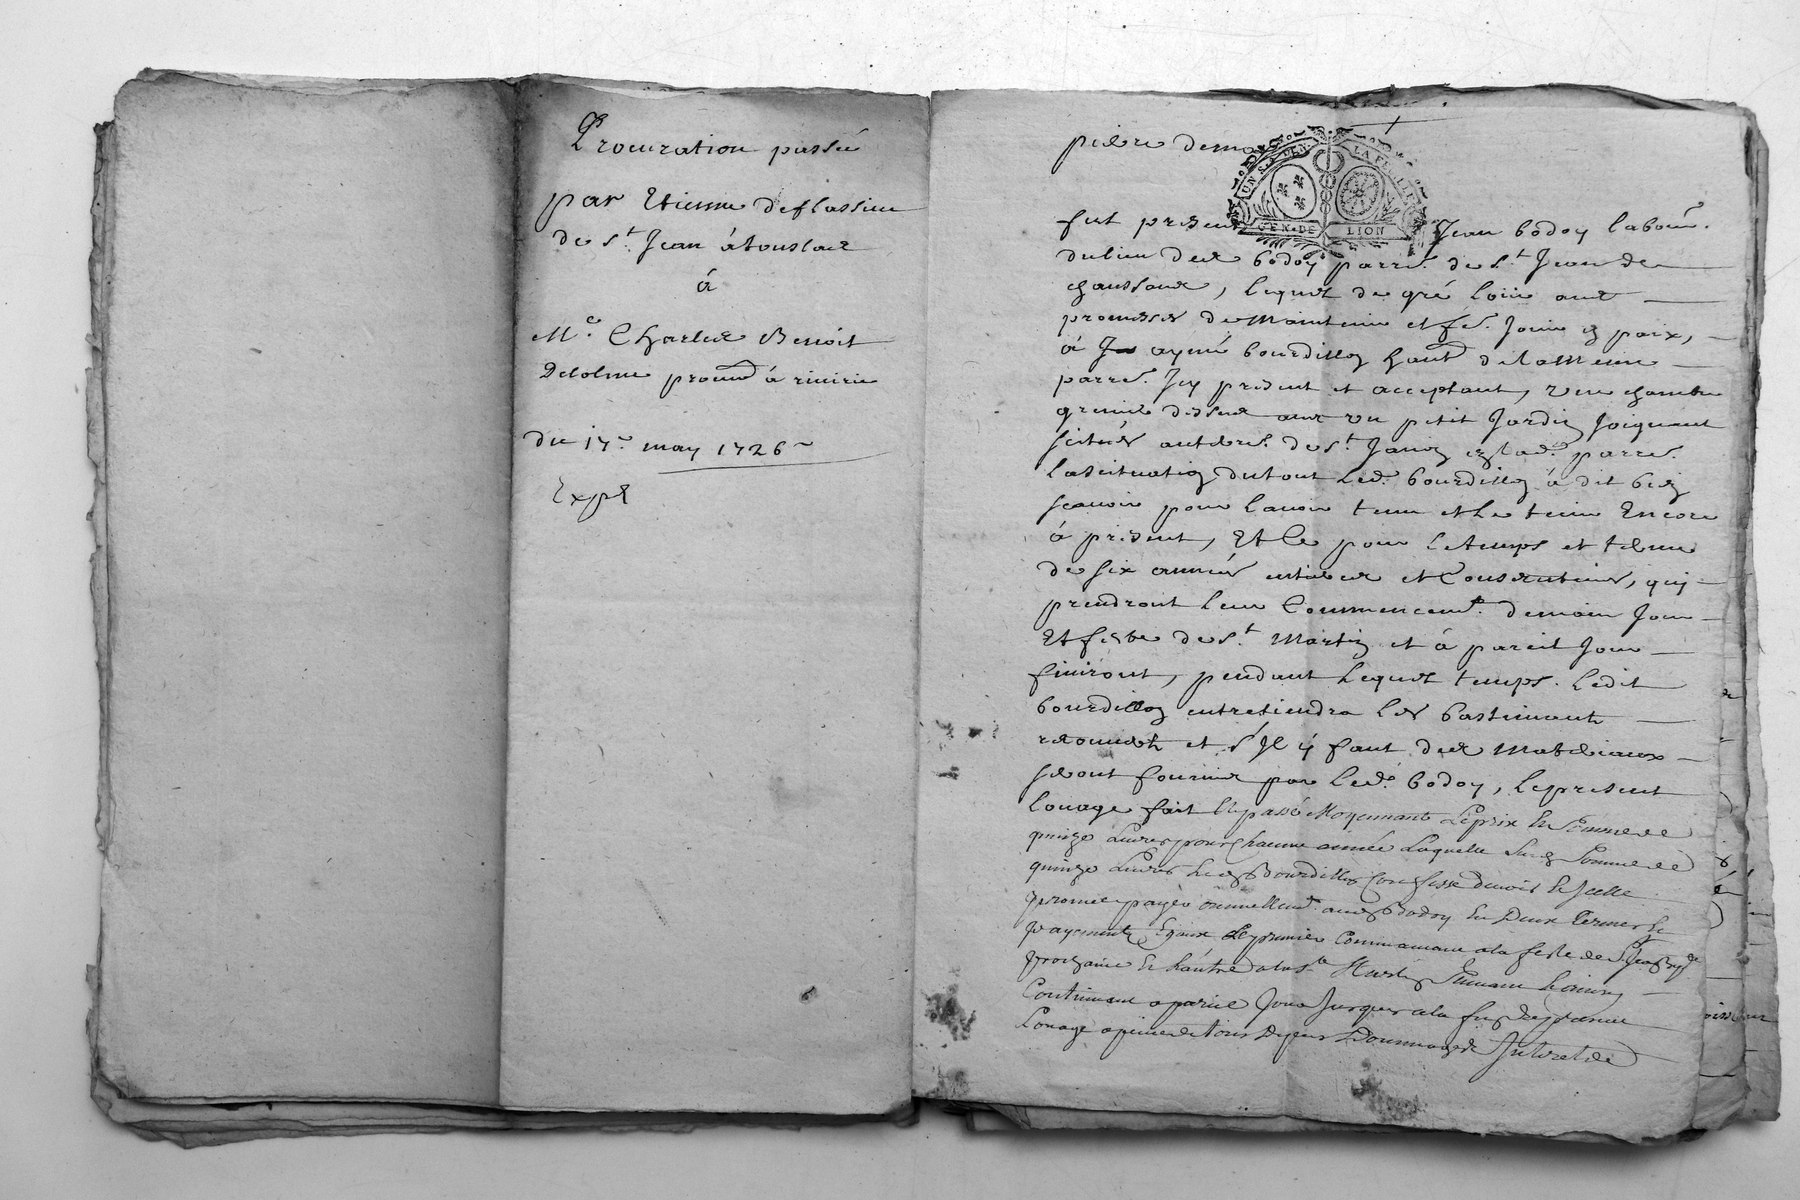 Procuration passée
par Etienne deflassieu
de St Jean à touslas
à
Me. Charles Benoit
Delolme procur à riverie
du 17e may 1726
Expé
pierre
UN S. 4 DEN. LA FEUILLE
GEN. DE LION
fut present Jean bodoy labour.
du lieu des bodoy parrs. de St Jean de
chaussant, lequel de gré loüe avec
promesse de maintenir et fe. Jouir en paix,
à aymé bourdillon
parrs. Icy present et acceptant, une chambre
grenier dessus avec un petit Jardin Joignant
scitués parrs.
la scituation du tout led. bourdillon à dit bien
scavoir pour lavoir tenu et le tenir Encore
à present, Et ce pour le temps et terme
de six années entieres et Consecutives, qui
prendront leur Commencemt. demain Jour
Et feste de St Martin et à pareil Jour
finiront, pendant lequel temps. Ledit
bourdillon entretiendra les bastiments
et s'Il y faut des Materiaux
seront fournis par led. bodoy, le present
louage fait Et passé Moyennant Le prix Et Somme de
quinze Livres pour Chacune année Laquelle Somme de
quinze Livres Led Bourdillon Confesse devoir Et Icelle
promet payer annuellemt. aud Bodoy En Deux Termes Et
payements Egaux Le premier Commancant a la feste de
prochaine Et L'autre a la St Martin Suivant Et ainsy
Continuant a pareil Jour Jusques a la fin du present
Louage a peine de Tous Depens Dommages Interets